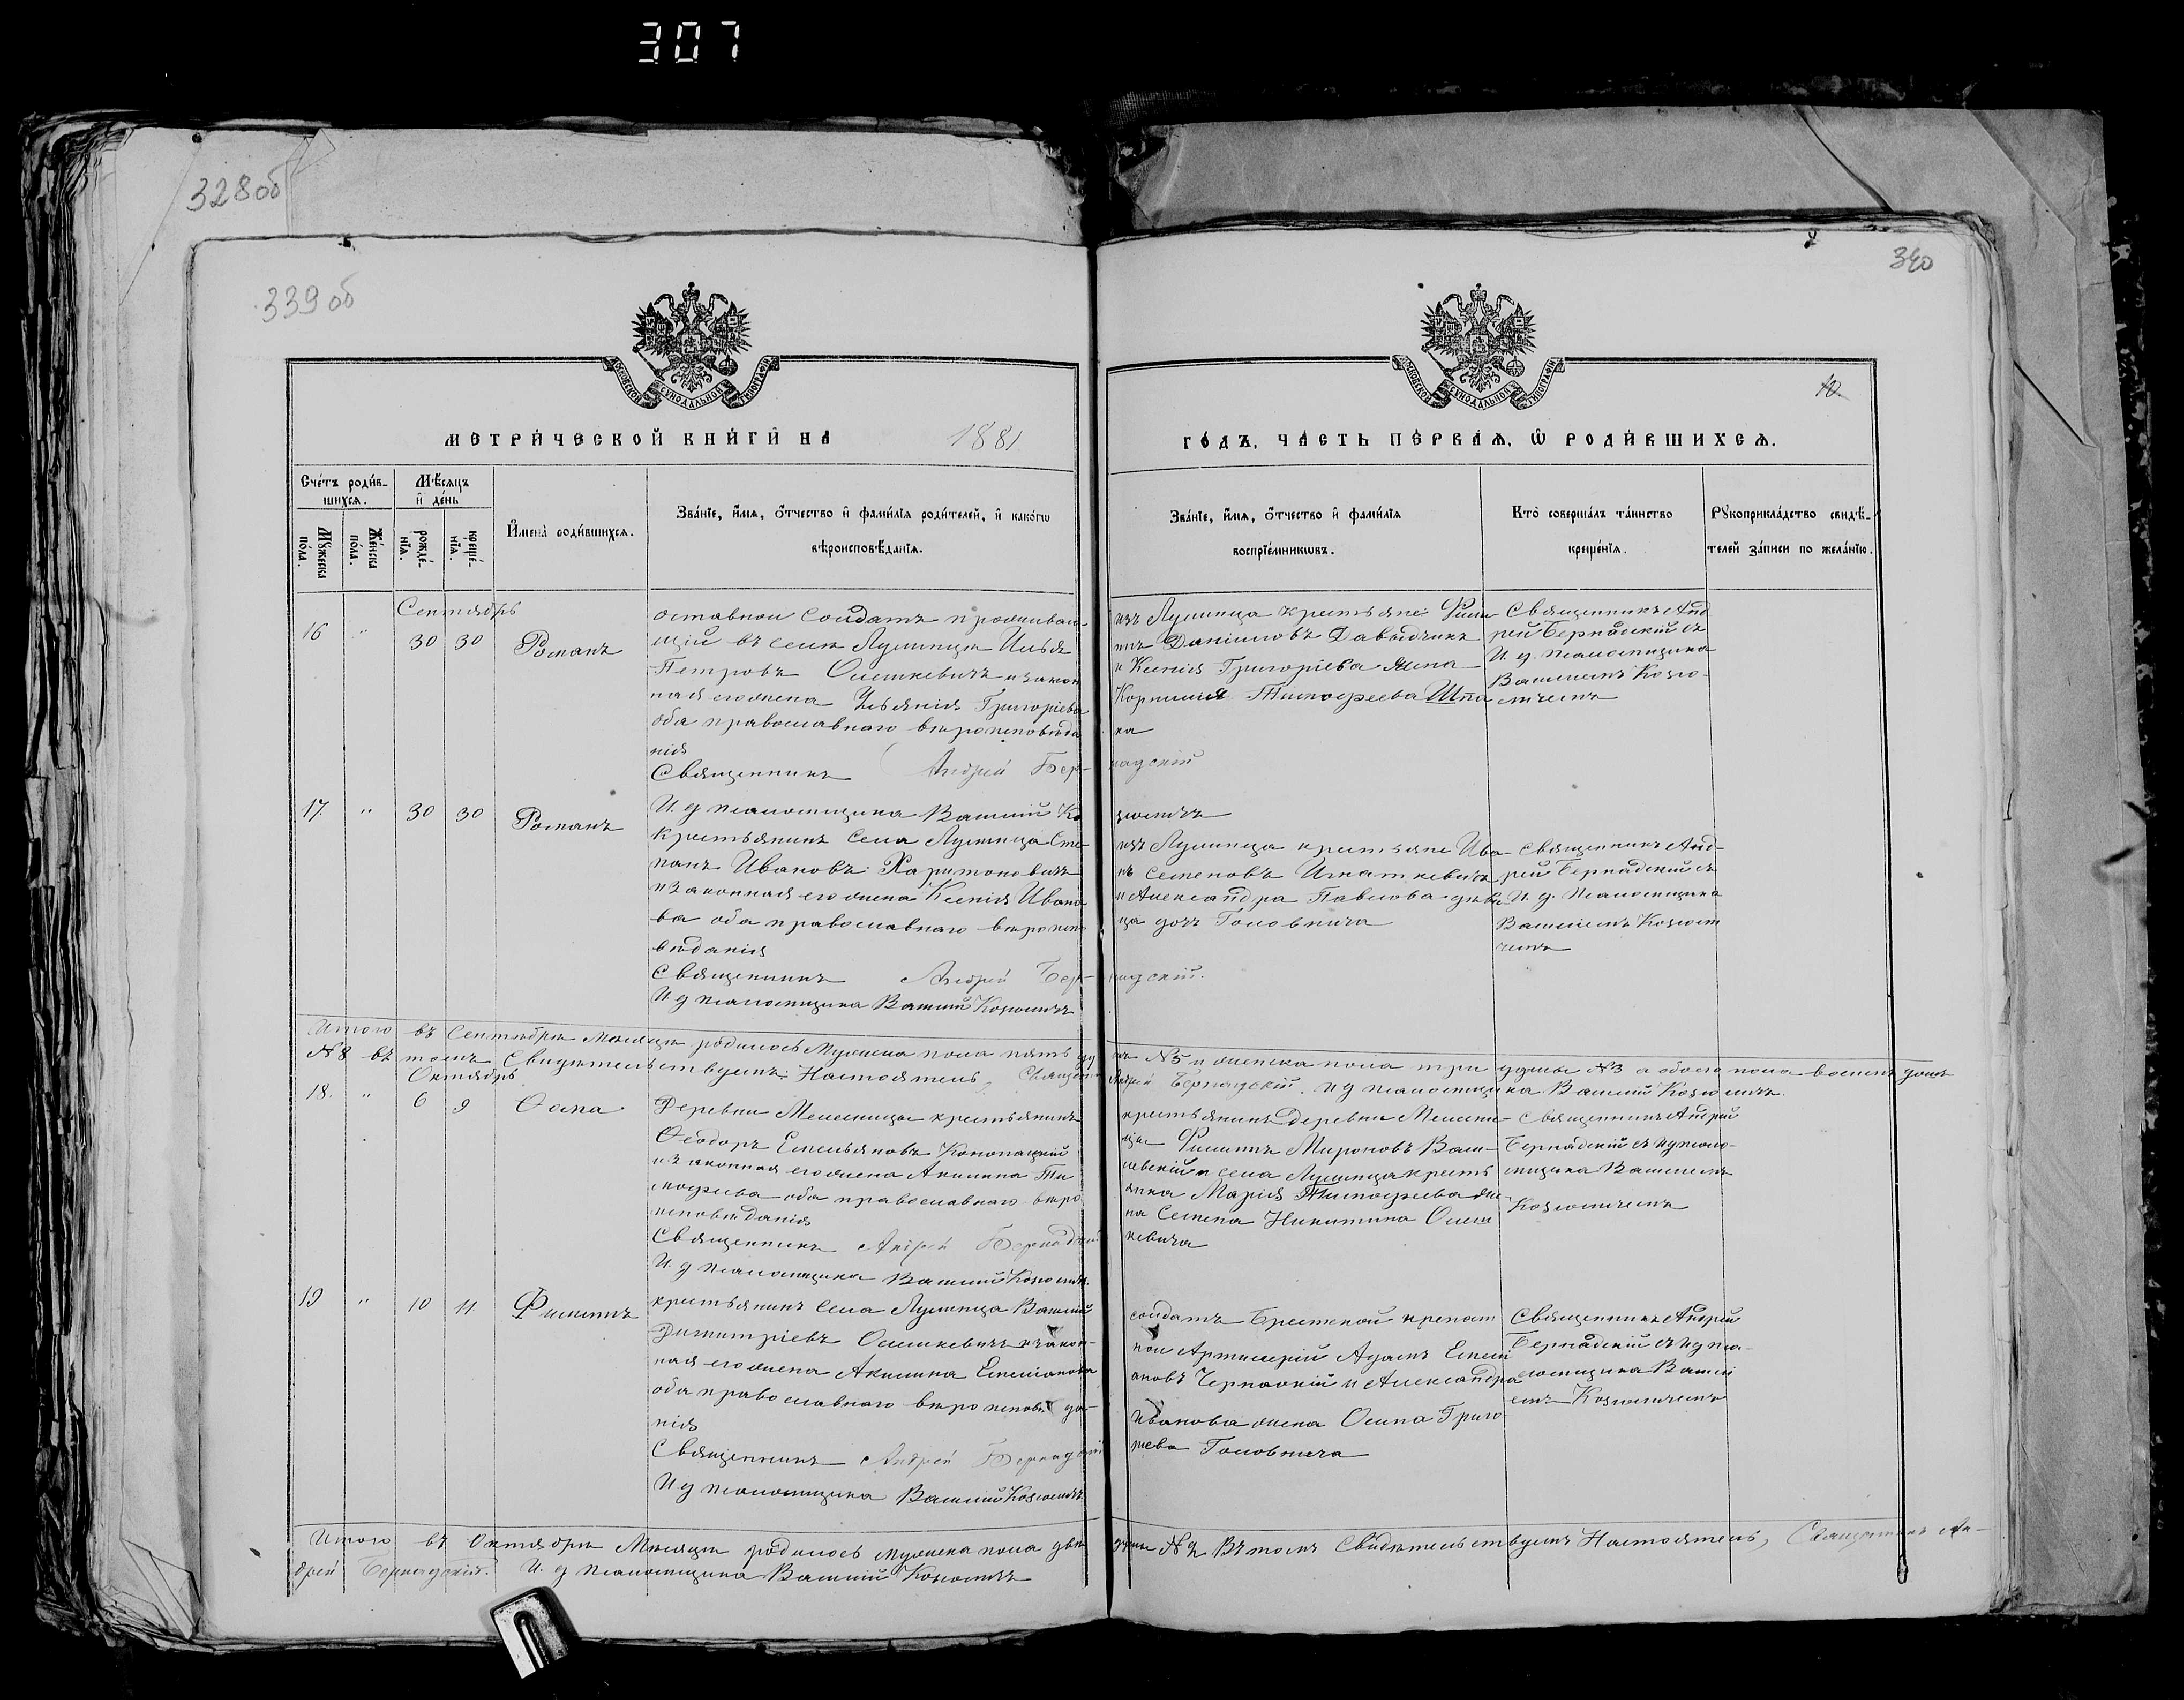 307
328об
339об
340
10
МОСКОВСКОЙ СѴНОДАЛЬНОЙ ТИПОГРАФІИ
МОСКОВСКОЙ СѴНОДАЛЬНОЙ ТИПОГРАФІИ
МЕТРИ́ЧЕСКОЙ КНИ́ГИ НА 1881
ГО́ДЪ, ЧА́СТЬ ПЕ́РВАЯ, Ѿ РОДИ́ВШИХСЯ.
Сче́тъ роди́в-
шихся.
Му́жеска по́ла.
Же́нска по́ла.
Мѣ́сяцъ
и̂ де́нь
рожде́-
нїѧ.
креще́-
нїѧ.
И҆мена̀ роди́вшихся.
Зва́нїе, и҆́мя, ѻ҆́тчество и҆ фами́лїѧ роди́телей, и҆ како́гѡ
вѣроисповѣ́данїѧ.
Зва́нїе, и҆́мя, ѻ҆́тчество и҆ фами́лїѧ
воспрїе́мникѡвъ.
Кто̀ соверша́лъ та́инство
креще́нїѧ.
Рꙋкоприкла́дство свидѣ́-
телей за́писи по жела́нїю.
Сентябрь
16 " 30 30 Романъ
оставной солдатъ проживаю-
щій въ селѣ Лушница Илья
Петровъ Олешкевичъ и закон
ная его жена Ульянія Григоріева
оба православнаго вѣроисповѣда
нія
Священникъ Андрей Бер-
надскій
И. д. псаломщика Василій Ко
зюличъ
изъ Лушница крестьяне Фили
пъ Даниловъ Давидчикъ
и Ксенія Григоріева жена
Корнилія Тимофеева Шпа
ка
Священникъ Анд
рей Бернадскій съ
И. д. псаломщика
Василіемъ Козю-
личемъ
17. " 30 30 Романъ
Крестьянинъ села Лушница Сте-
панъ Ивановъ Харитоновичъ
и законная его жена Ксенія Ивано
ва оба православнаго вѣроиспо
вѣданія
Священникъ Андрей Бер-
надскій.
И. д псаломщика Василій Козюличъ
изъ Лушница крестьяне Ива-
нъ Семеновъ Игнаткевичъ
и Александра Павлова дѣви
ца дочь Головнича
Священникъ Анд-
рей Бернадскій съ
И. д. псаломщика
Василіемъ Козюли
чемъ
Итого въ Сентябрѣ Мѣсяцѣ родилось Мужеска пола пять ду
шъ №5 и женска пола три души №3 а обоего пола восемь душъ
№8 въ томъ Свидѣтельствуемъ: Настоятель, Священ
Андрей Бернадскій. и д псаломщика Василій Козюличъ.
Октябрь
18. " 6 9 Ѳома
Деревни Мелесницы крестьянинъ
Ѳеодоръ Емельяновъ Конопацкій
и законная его жена Акилина Ти
мофеева оба православнаго вѣро
исповѣданія
Священникъ Андрей Бернадскій
И. д псаломщика Василій Козюличъ.
крестьянинъ деревни Мелесни-
цы Филипъ Мироновъ Вași-
левскій и села Лушница кресть
янка Марія Тимофеева же-
на Семена Никитина Олеш
кевича
Священникъ Андрей
Бернадскій съ и д псало-
мщика Василіемъ
Козюличемъ
19 " 10 11 Филипъ
крестьянинъ села Лушница Василій
Димитріевъ Олешкевичъ и закон-
ная его жена Акилина Емеліанова
оба православнаго вѣроисповѣда-
нія
Священникъ Андрей Бернадскій
И. д псаломщика Василій Козюличъ.
солдатъ Брестской крепост
ной Артилерій Адамъ Емели
ановъ и Александра
Иванова жена Осипа Григо
рева Головнича
Священникъ Андрей
Бернадскій съ и д пса-
ломщика Васил
емъ Козюличемъ
Итого въ Октябрѣ Мѣсяцѣ родилось мужеска пола двѣ
души №2 Въ томъ Свидѣтельствуемъ Настоятель, Священникъ Ан-
дрей Бернадскій. И. д псаломщика Василій Козюличъ